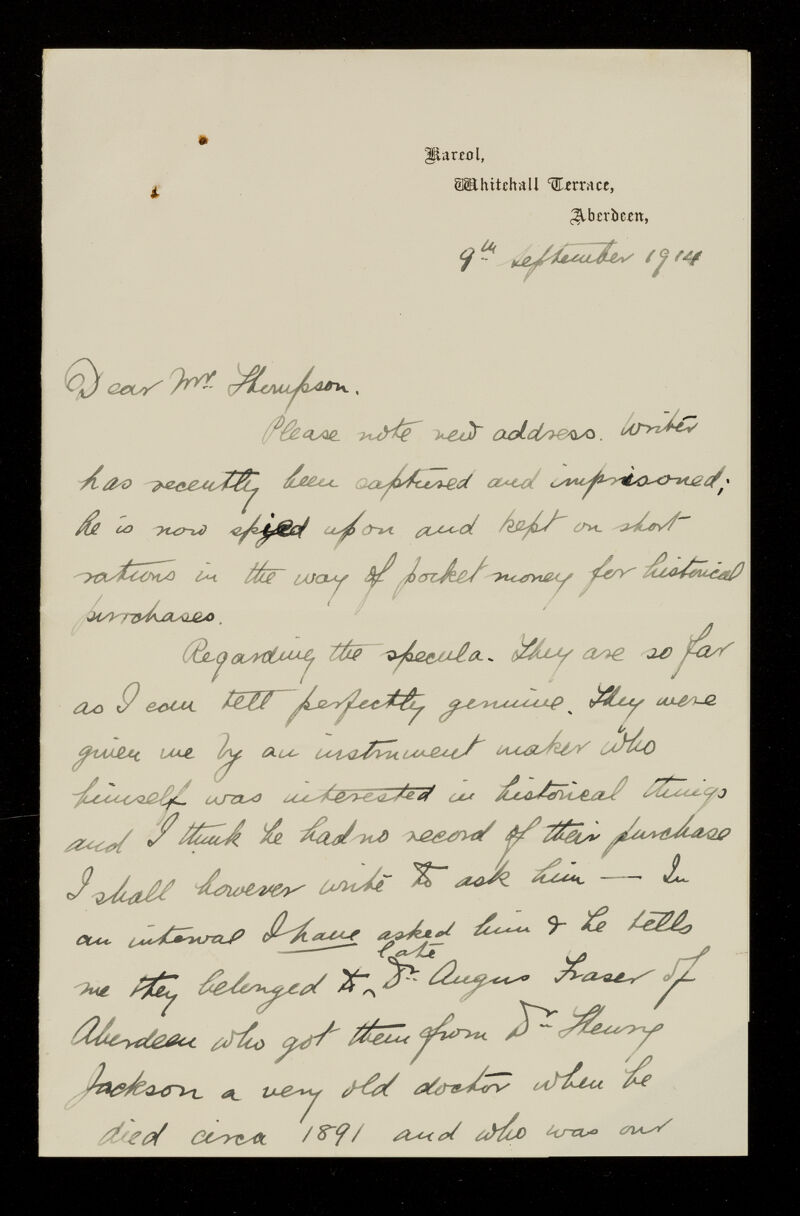 Kareol,
Whitehall Terrace,
Aberdeen,
9th September 1914
Dear Mr. Thompson.
Please note new address. Writer
has recently been captured and imprisoned;
he is now spied upon and kept on short
rations in the way of pocket money for historical
purchases.
Regarding the specula. They are so far
as I can tell perfectly genuine. They were
given me by an instrument maker who
himself was interested in historical things
and I think he had no record of their purchase
I shall however write to ask him — In
an interval I have asked him & he tells
me they belonged to late Dr. Angus Fraser of
Aberdeen who got them from Dr. Henry
Jackson a very old doctor when he
died circa 1891 and who was our